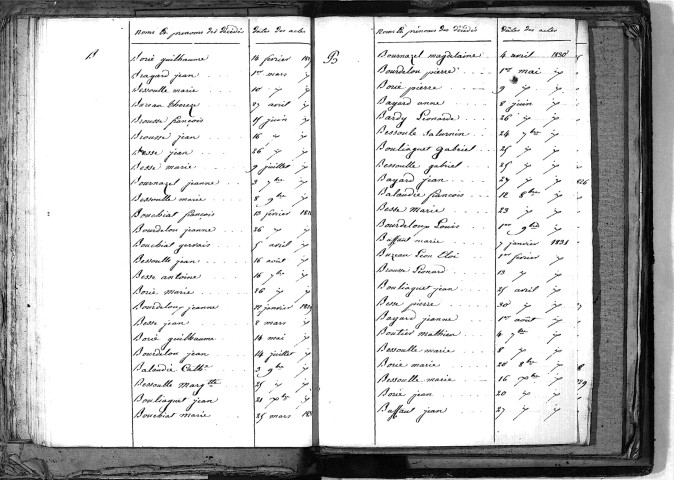 Noms et prénoms des Décédés Dates des actes
B
Borie guilhaume 14 février
Dragard jean 1er mars
Bessoulle marie 10
Bureau Thereze 27 avril
Brousse françois 15 juin
Brousse jean 16
Besse jean 26
Besse marie 9 juillet
Bournazel jeanne 3 7bre
Bessoulle marie 8 9bre
Bouchiat françois 13 février
Bourdelou jeanne 26
Bouchiat gervais 5 avril
Bessoulle jean 16 août
Besse antoine 16 7bre
Borie marie 26
Bourdeloup jeanne 11 janvier
Besse jean 2 mars
Borié guilhaume 14 mai
Bourdelou jean 14 juillet
Balandie Cathe 3 9bre
Bessoulle Margtte 25
Bouliaguet jean 21 Xbre
Bouchiat marie 25 mars
Noms et prénoms des Décédés Dates des actes
B
Bournazel magdelaine 4 avril 1830
Bourdelou pierre 1er mai
Borie pierre 9
Bayard anne 8 juin
Bardy Léonarde 26
Bessoule Saturnin 24 7bre
Bouliaguet gabriel 25
Bessoulle gabriel 25
Bayard jean 27
Balandie françois 12 8bre
Besse Marie 23
Bourdeloup Louis 1er 9bre
Baffaut marie 7 janvier 1831
Buzeau Léon Eloi 1er février
Brousse Léonard 13
Bouliaguet jean 25 avril
Besse pierre 30
Bayard jeanne 1er août
Boutier mathieu 4 7bre
Bessoulle marie 8
Borie marie 28 8bre
Bessoulle marie 16 Xbre
Borie jean 20
Baffaut jean 27